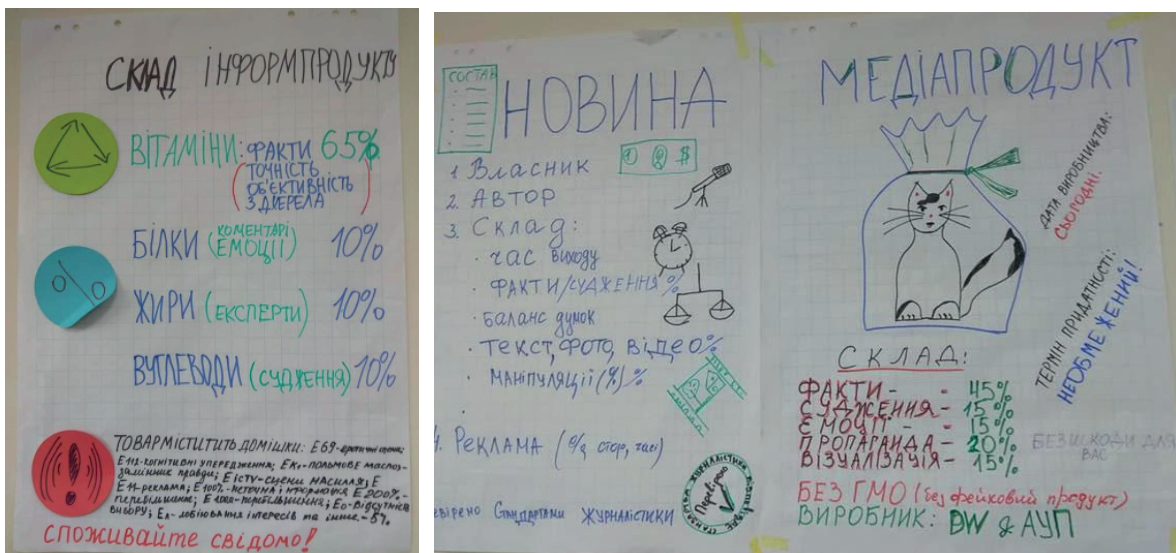 СКЛАД ІНФОРМПРОДУКТУ
ВІТАМІНИ: ФАКТИ 65%
ТОЧНІСТЬ
ОБ'ЄКТИВНІСТЬ
ДЖЕРЕЛА
БІЛКИ (КОМЕНТАРІ ЕМОЦІЇ) 10%
ЖИРИ (ЕКСПЕРТИ) 10%
ВУГЛЕВОДИ (СУДЖЕННЯ) 10%
ТОВАР МІСТИТИТЬ ДОМІШКИ: Е69-
когнітивні упередження; пальмове масло-
замінник правди; Е ІСТУ-сцени насилля; Е
Е11-реклама; Е100%-
перебільшення; Е0-відсутність
вибору; лобіювання інтересів та інше-5%
СПОЖИВАЙТЕ СВІДОМО!
СОСТАВ
НОВИНА
1 Власник
2. АВТОР
3. Склад:
· час виходу
· ФАКТИ/СУДЖЕННЯ %
· баланс думок
· текст, фото, відео%
· маніпуляції (%) %
4. Реклама (%, стор, час)
евірено Стандартами ЖУРНАЛІСТИКИ
Перевірено
МЕДІАПРОДУКТ
ДАТА ВИРОБНИЦТВА:
СЬОГОДНІ.
ТЕРМІН ПРИДАТНОСТІ:
НЕОБМЕЖЕНИЙ!
СКЛАД:
ФАКТИ - - 45%
СУДЖЕННЯ - 15%
ЕМОЦІЇ - - 15%
ПРОПАГАНДА - 20%
ВІЗУАЛІЗАЦІЯ - 15%
БЕЗ ШКОДИ ДЛЯ
ВАС
БЕЗ ГМО (без фейковий продукт)
ВИРОБНИК: DW & АУП